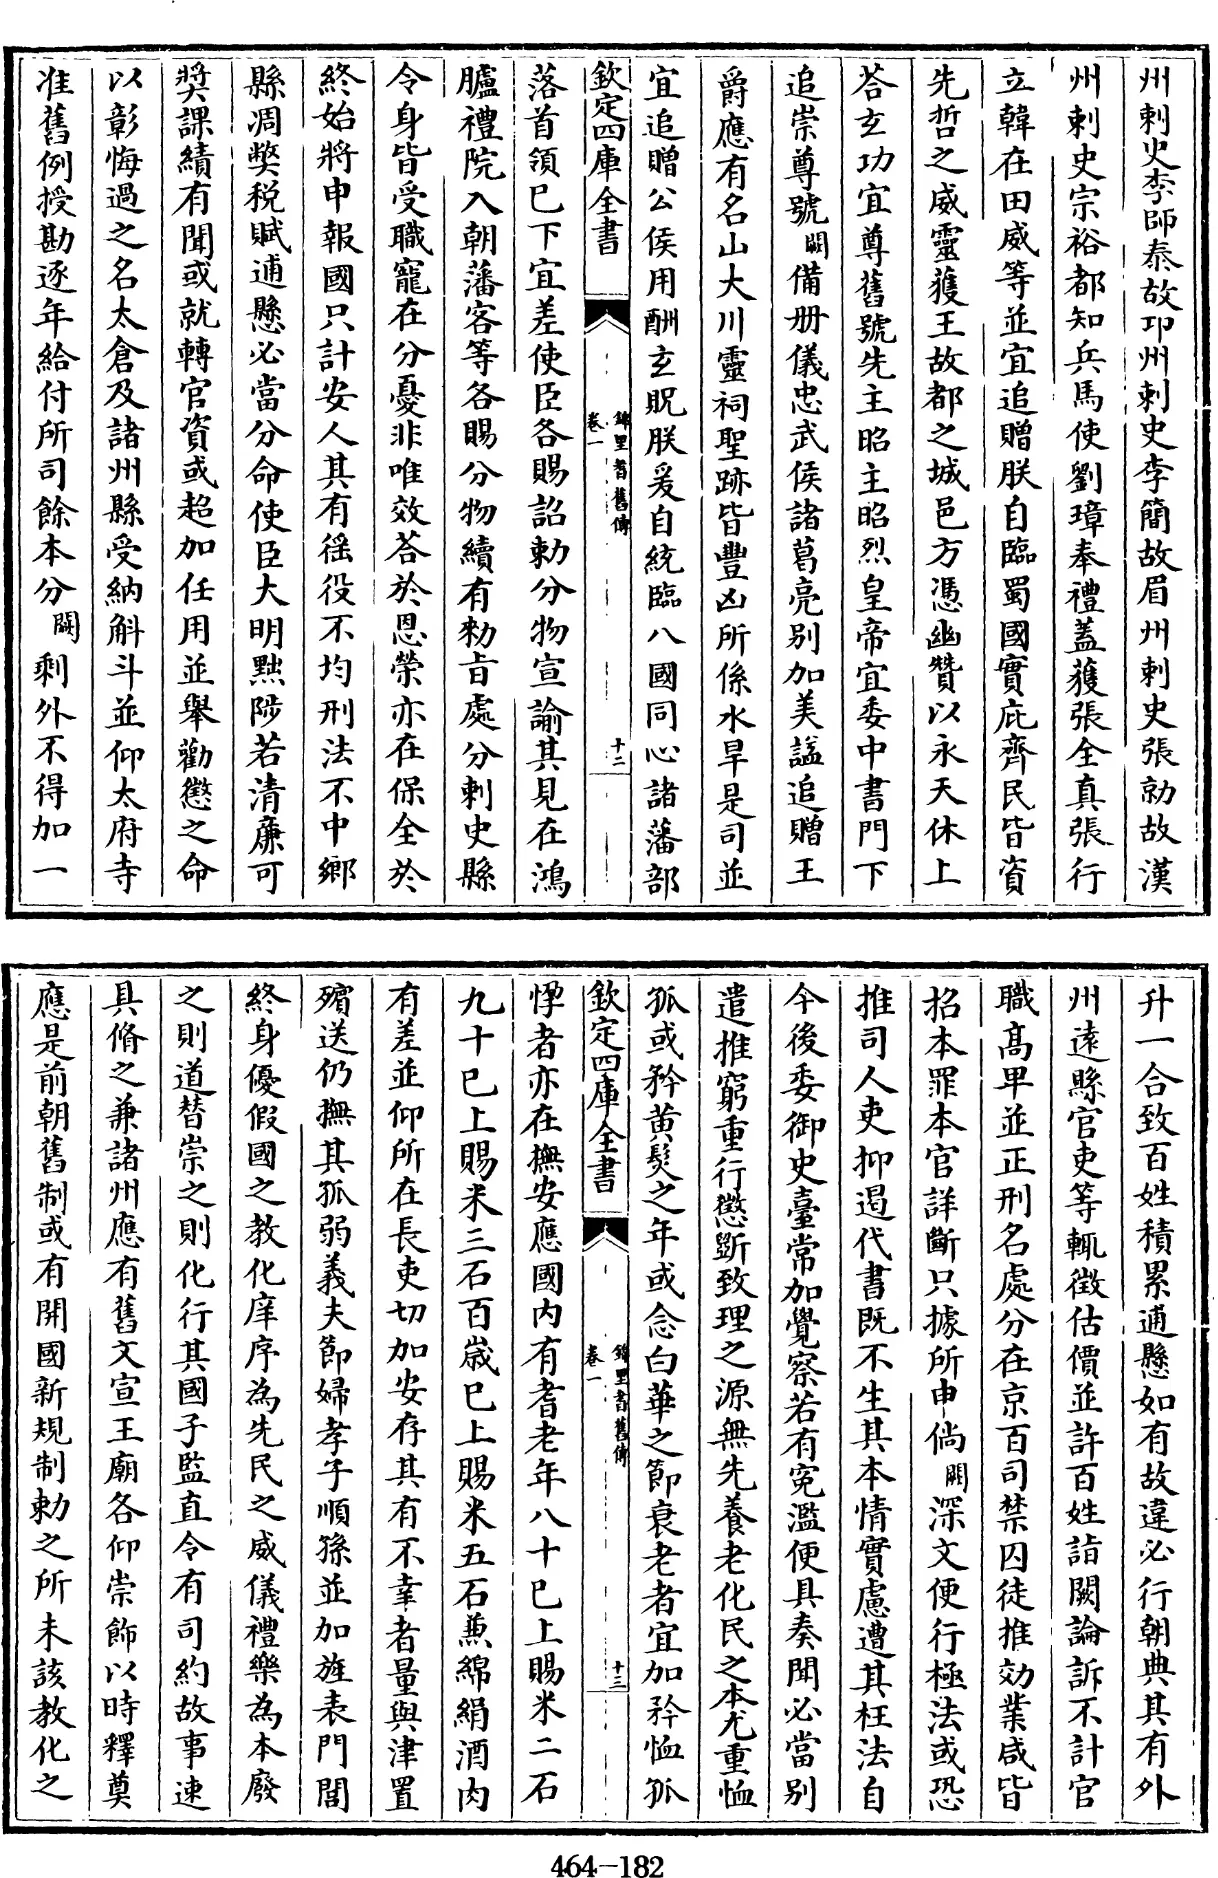 州刺史李師泰故邛州刺史李簡故眉州刺史張勍故漢
州刺史宗裕都知兵馬使劉璋奉禮葢獲張全真張行
立韓在田威等並宜追贈朕自臨蜀國實庇齊民皆資
先哲之威靈獲王故都之城邑方憑幽贊以永天休上
荅玄功宜尊舊號先主昭主昭烈皇帝宜委中書門下
追崇尊號闕備册儀忠武侯諸葛亮别加美諡追贈王
爵應有名山大川靈祠聖跡皆豐凶所係水旱是司並
宜追贈公侯用酬玄貺朕爰自統臨八國同心諸藩部
欽定四庫全書
錦里耆舊傳
卷一
十二
落首領已下宜差使臣各賜詔勅分物宣諭其見在鴻
臚禮院入朝藩客等各賜分物續有勅旨處分刺史縣
令身皆受職寵在分憂非唯效荅於恩榮亦在保全於
終始將申報國只計安人其有徭役不均刑法不中鄉
縣凋獘税賦逋懸必當分命使臣大明黜陟若清廉可
奬課績有聞或就轉官資或超加任用並舉勸懲之命
以彰悔過之名太倉及諸州縣受納斛斗並仰太府寺
准舊例授勘逐年給付所司餘本分闕剩外不得加一
升一合致百姓積累逋懸如有故違必行朝典其有外
州遠縣官吏等輒徵估價並許百姓詣闕論訴不計官
職髙卑並正刑名處分在京百司禁囚徒推効業咸皆
招本罪本官詳斷只據所申倘闕深文便行極法或恐
推司人吏抑遏代書既不生其本情實慮遭其枉法自
今後委御史臺常加覺察若有寃濫便具奏聞必當别
遣推窮重行懲斷致理之源無先養老化民之本尤重恤
孤或矜黄髮之年或念白華之節衰老者宜加矜恤孤
欽定四庫全書
錦里耆舊傳
卷一
十三
惸者亦在撫安應國内有耆老年八十已上賜米二石
九十已上賜米三石百歳已上賜米五石兼綿絹酒肉
有差並仰所在長吏切加安存其有不幸者量與津置
殯送仍撫其孤弱義夫節婦孝子順孫並加旌表門閭
終身優假國之教化庠序為先民之威儀禮樂為本廢
之則道替崇之則化行其國子監直令有司約故事速
具脩之兼諸州應有舊文宣王廟各仰崇飾以時釋奠
應是前朝舊制或有開國新規制勅之所未該教化之
464-182